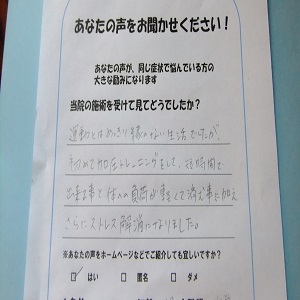 あなたの声をお聞かせください！
あなたの声が、同じ症状で悩んでいる方の
大きな励みになります
当院の施術を受けて見てどうでしたか？
運動とはめっきり縁のない生活でしたが
初めて加圧トレーニングをして、短時間で
出来る事と体への負荷が軽くて済む事に加え
さらにストレス解消になりました。
※あなたの声をホームページなどでご紹介しても宜しいですか？
☑ はい □ 匿名 □ ダメ